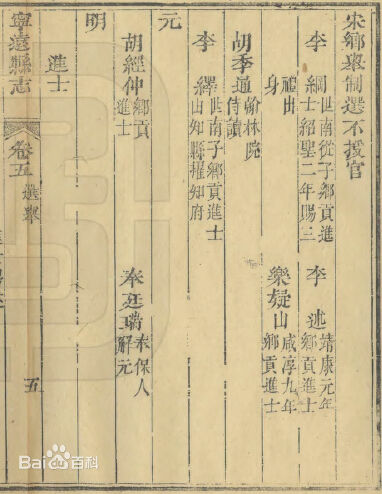 宋鄉舉制選不授官
李 綱 世南從子鄉貢進
士紹聖二年賜三
李 述 靖康元年
鄉貢進士
禮出
身
樂 山 咸淳九年
鄉貢進士
胡季通 翰林院
侍讀
李 繹 世南子鄉貢進士
山知縣權知府
元
胡經仲 鄉貢
進士
奉廷瑞 奉保人
解元
明
進士
寧遠縣志 卷五 選舉 五
Bai百科